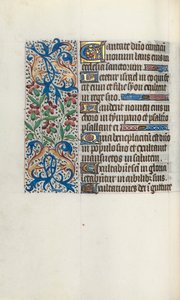 Cantate dño canticū
nouum laus eius in
ecclesia sanctorum
Letetur israel in eo qui fe
cit eum et filie syon exultent
in rege suo
Laudent nomen eius in
choro in tympano et psalterio
psallant ei
Quia beneplacitū est dño
in populo suo et exultauit
mansuetos in salutem
Exultabunt sci in gloria
letabuntur in cubilib9 suis
Exultationes dei ī gutture